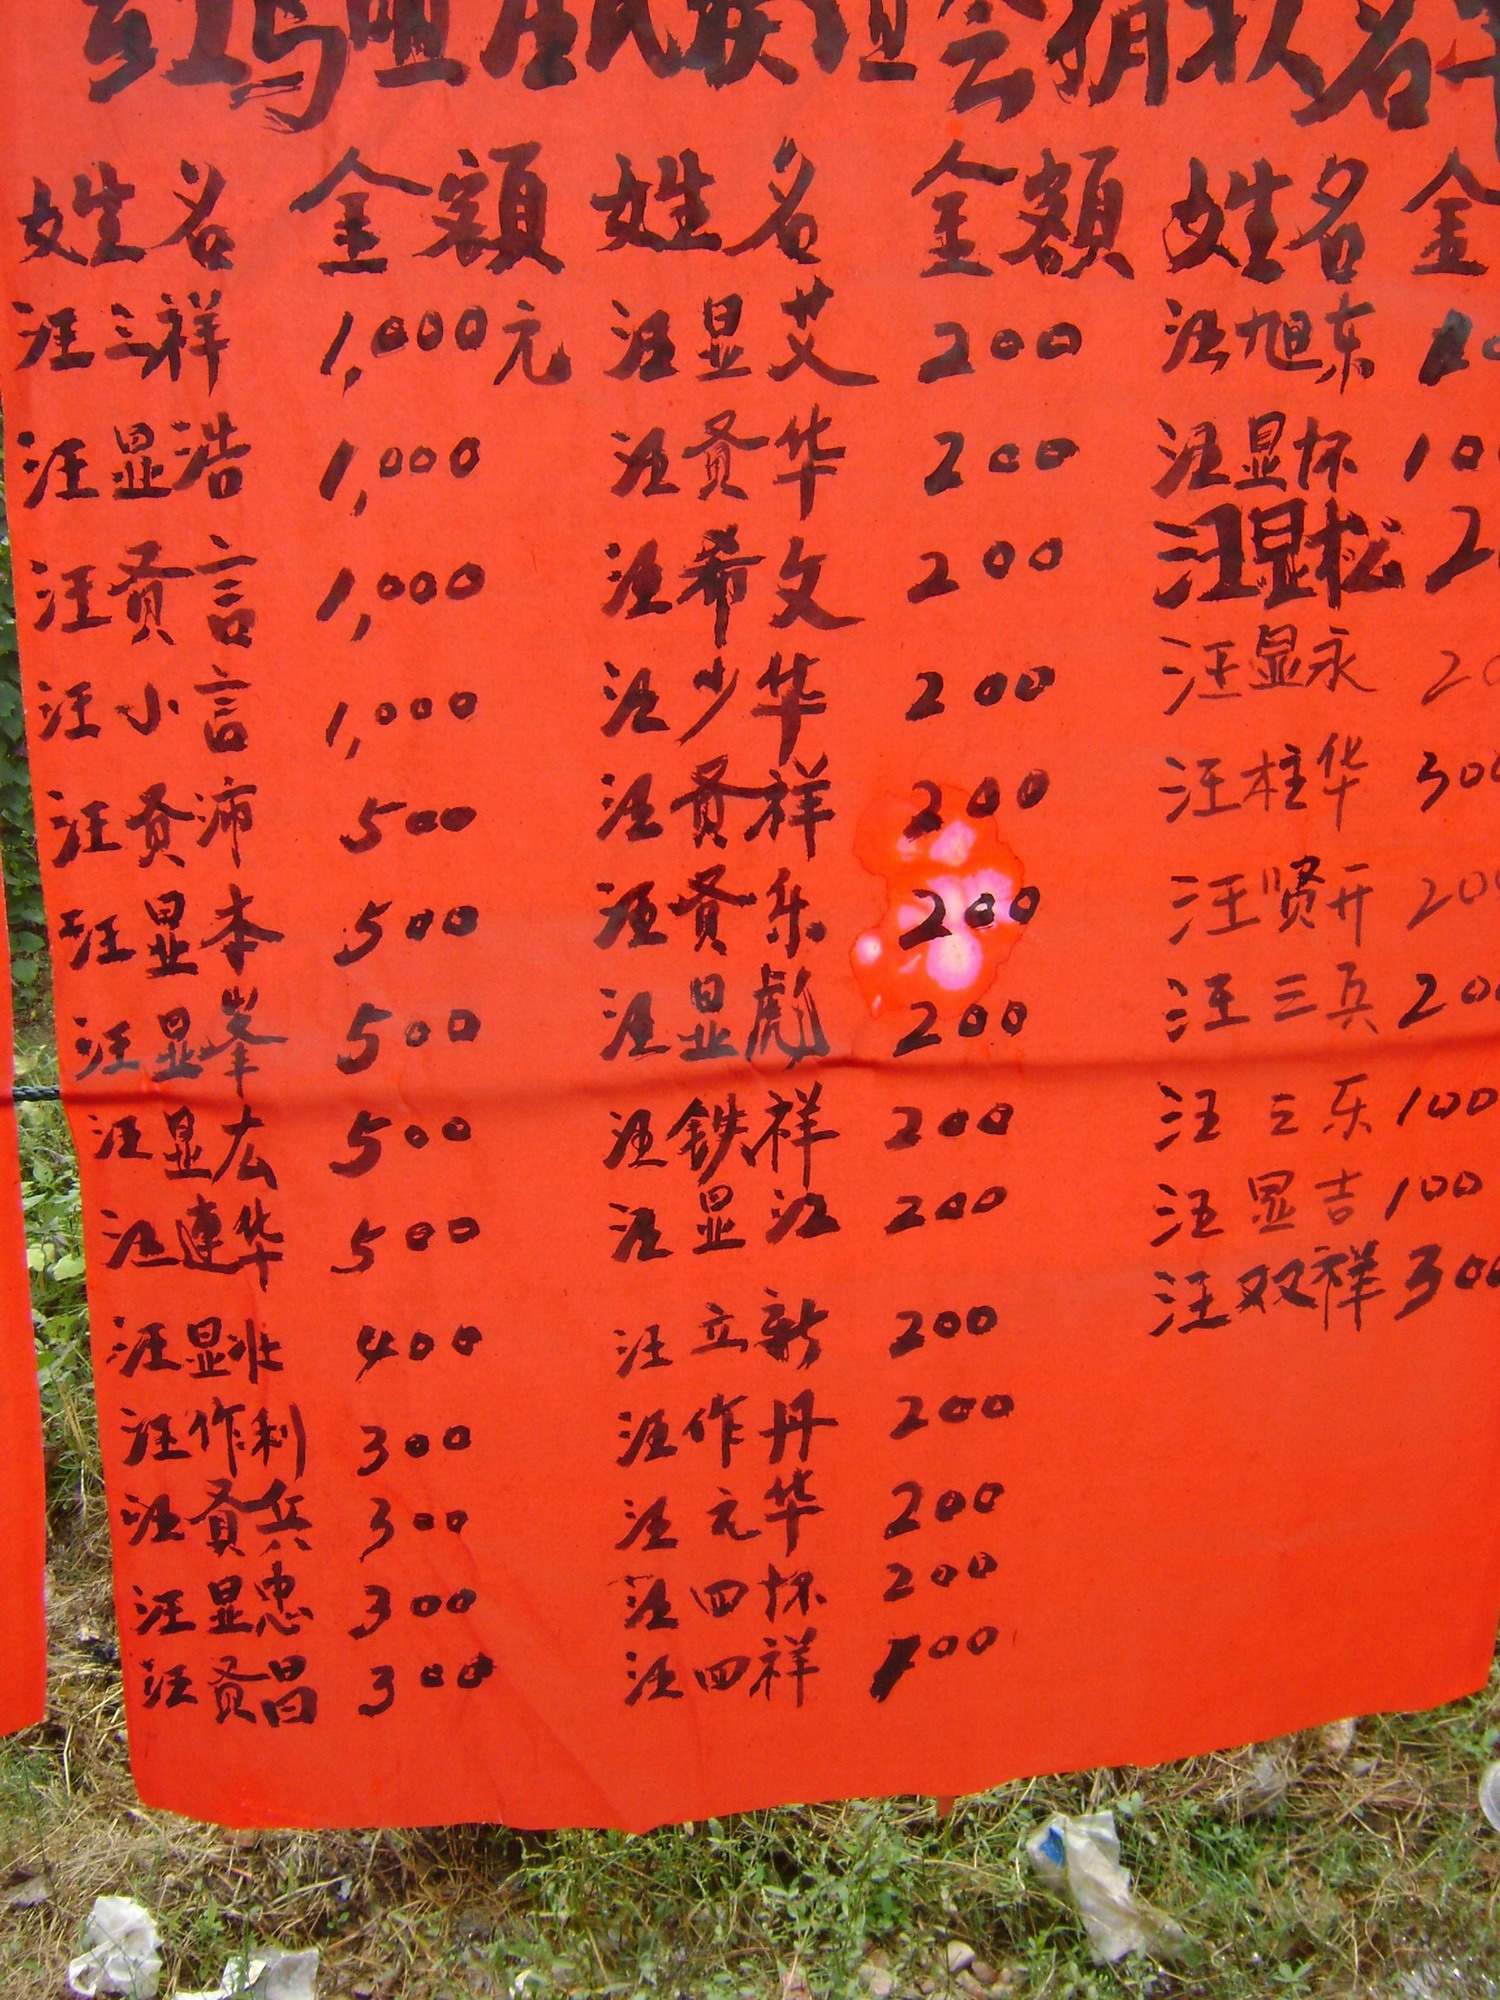 会捐款名单
姓名 金额 姓名 金额 姓名 金
汪三祥 1,000元 汪显艾 200 汪旭东
汪显浩 1,000 汪贤华 200 汪显怀 10
汪贤言 1,000 汪希文 200 汪显松 2
汪小言 1,000 汪少华 200 汪显永 20
汪贤沛 500 汪贤祥 200 汪柱华 300
汪显本 500 汪贤乐 200 汪贤开 200
汪显峯 500 汪显彪 200 汪三兵 200
汪显宏 500 汪铁祥 200 汪三乐 100
汪連华 500 汪显江 200 汪显吉 100
汪显兆 400 汪立新 200 汪双祥 300
汪作利 300 汪作丹 200
汪贤兵 300 汪元华 200
汪显忠 300 汪四怀 200
汪贤昌 300 汪四祥 100